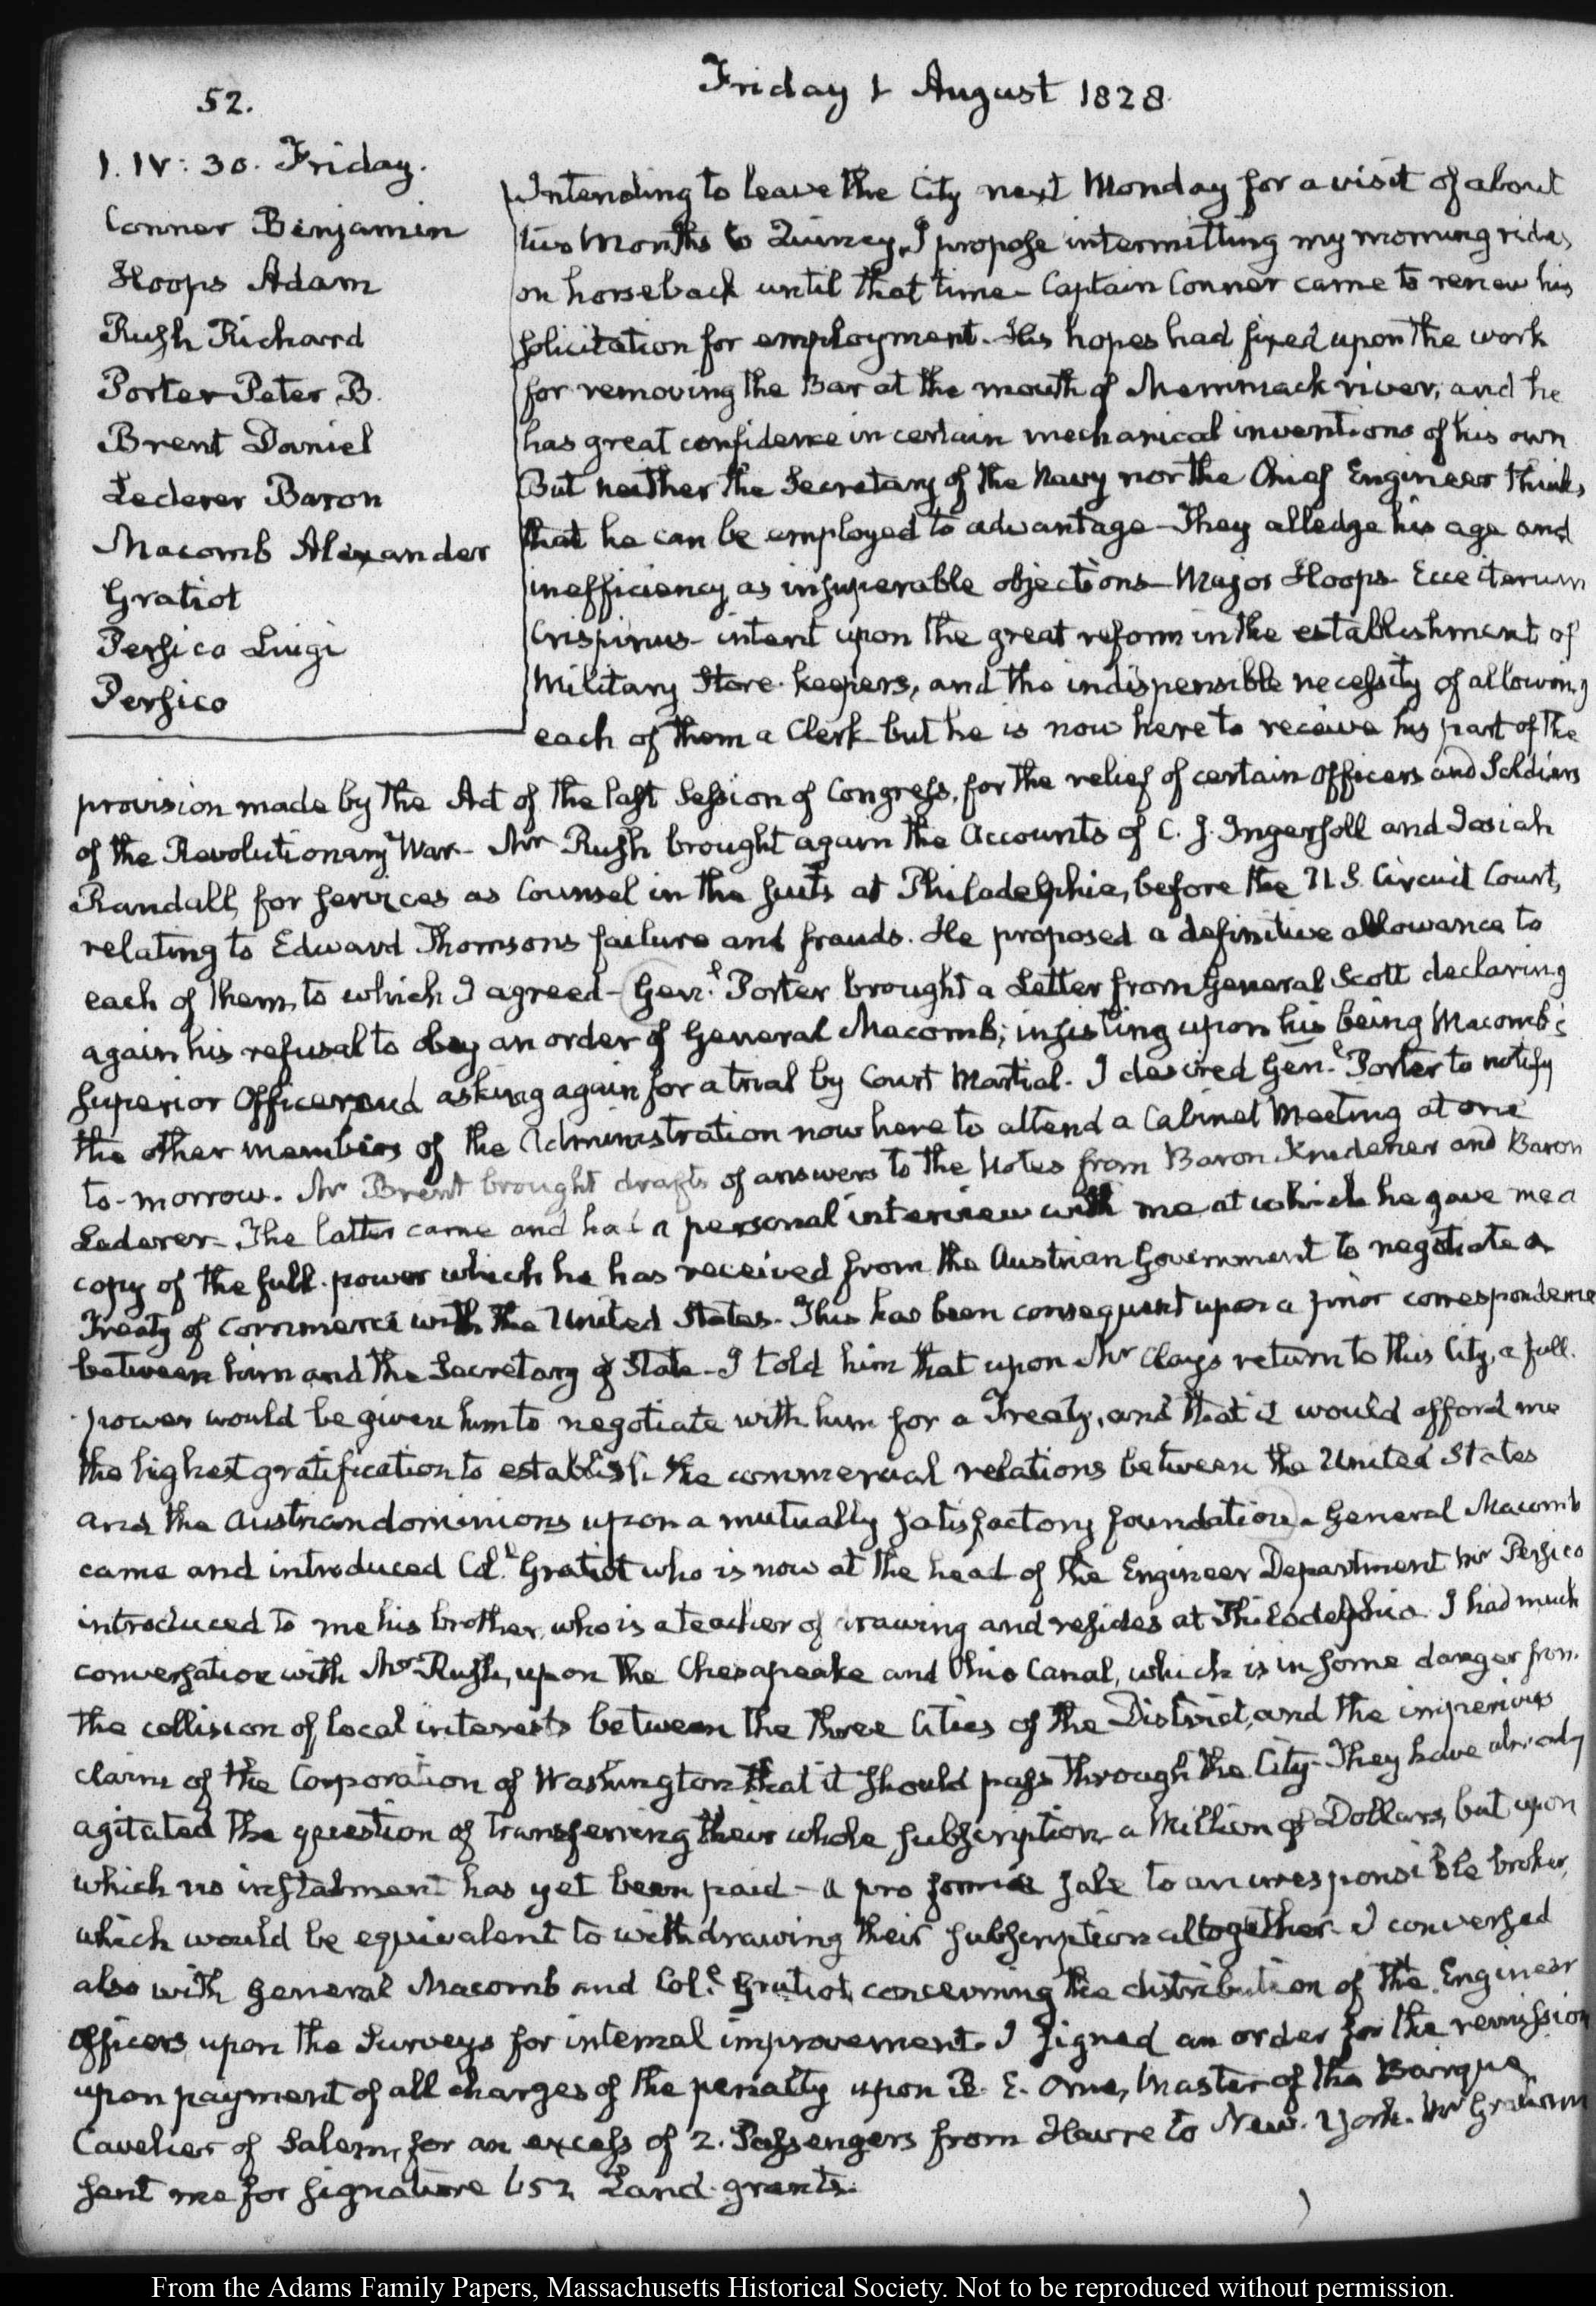 52.
Friday 1 August 1828.
1. IV: 30. Friday.
Conner Benjamin
Hoops Adam
Rush Richard
Porter Peter B.
Brent Daniel
Lederer Baron
Macomb Alexander
Gratiot
Persico Luigi
Persico
Intending to leave the City next Monday for a visit of about
two Months to Quincy, I propose intermitting my morning rides
on horseback until that time— Captain Conner came to renew his
solicitation for employment. His hopes had fixed upon the work
for removing the Bar at the mouth of Merrimack river, and he
has great confidence in certain mechanical inventions of his own
But neither the Secretary of the Navy nor the Chief Engineer thinks
that he can be employed to advantage— They alledge his age and
inefficiency as insuperable objections— Major Hoops— Ecce iterum
Crispinus— intent upon the great reform in the establishment of
Military Store-keepers, and the indispensible necessity of allowing
each of them a Clerk but he is now here to receive his part of the
provision made by the Act of the last Session of Congress, for the relief of certain Officers and Soldiers
of the Revolutionary War— Mr Rush brought again the Accounts of C. J. Ingersoll and Josiah
Randall, for services as Counsel in the suits at Philadelphia, before the U.S. Circuit Court,
relating to Edward Thomsons failure and frauds. He proposed a definitive allowance to
each of them, to which I agreed— Genl. Porter brought a Letter from General Scott declaring
again his refusal to obey an order of General Macomb; insisting upon his being Macomb's
superior Officer and asking again for a trial by Court Martial. I desired Genl. Porter to notify
the other members of the Administration now here to attend a Cabinet Meeting at one
to-morrow. Mr Brent brought drafts of answers to the Notes from Baron Krudener and Baron
Lederer— The latter came and had a personal interview with me at which he gave me a
copy of the full-power which he has received from the Austrian Government to negotiate a
Treaty of Commerce with the United States. This has been consequent upon a prior correspondence
between him and the Secretary of State— I told him that upon Mr Clay's return to this City, a full-
power would be given him to negotiate with him for a Treaty, and that it would afford me
the highest gratification to establish the commercial relations between the United States
and the Austrian dominions upon a mutually satisfactory foundation— General Macomb
came and introduced Coll. Gratiot who is now at the head of the Engineer Department Mr Persico
introduced to me his brother, who is a teacher of drawing and resides at Philadelphia. I had much
conversation with Mr Rush, upon the Chesapeake and Ohio Canal, which is in some danger from
the collision of local interests between the three Cities of the District, and the imperious
claim of the Corporation of Washington that it should pass through the City— They have already
agitated the question of transferring their whole subscription a Million of Dollars, but upon
which no instalment has yet been paid— a pro forma sale to an irresponsible broker,
which would be equivalent to withdrawing their subscription altogether. I conversed
also with General Macomb and Coll. Gratiot, concerning the distribution of the Engineer
Officers upon the Surveys for internal improvement. I signed an order for the remission
upon payment of all charges of the penalty upon E. Orne, Master of the Barque
Cavelier of Salem, for an excess of 2. Passengers from Havre to New-York. Mr Graham
sent me for signature 652 Land-grants.
From the Adams Family Papers, Massachusetts Historical Society. Not to be reproduced without permission.